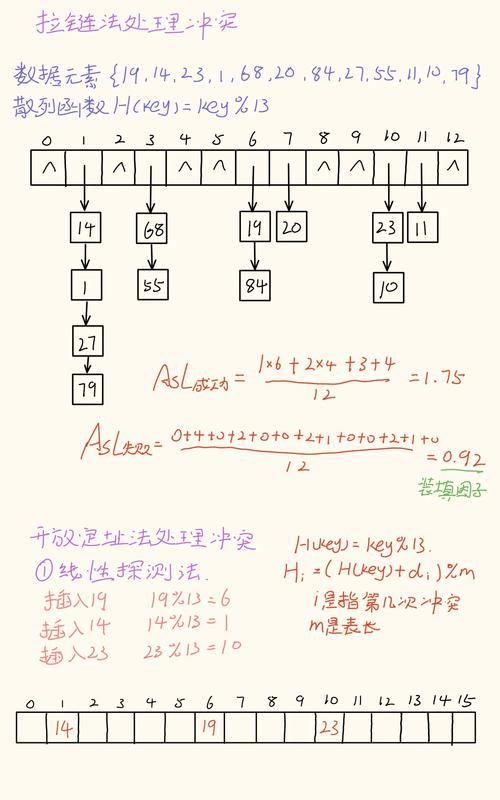 拉链法处理冲突
数据元素{19,14,23,1,68,20,84,27,55,11,10,79}
散列函数H(key)=key%13
0 1 2 3 4 5 6 7 8 9 10 11 12
^ ^ ^ ^ ^ ^ ^
14 68 19 20 23 11
1 55 84 10
27
79
ASL成功= 1×6+2×4+3+4 =1.75
12
ASL失败= 0+4+0+2+0+0+2+1+0+0+2+1+0 =0.92
12
装填因子
开放定址法处理冲突
①线性探测法.
H(key)=key%13.
Hi=(H(key)+di)%m
i是指第几次冲突
m是表长
插入19 19%13=6
插入14 14%13=1
插入23 23%13=10
0 1 2 3 4 5 6 7 8 9 10 11 12 13 14 15
14 19 23